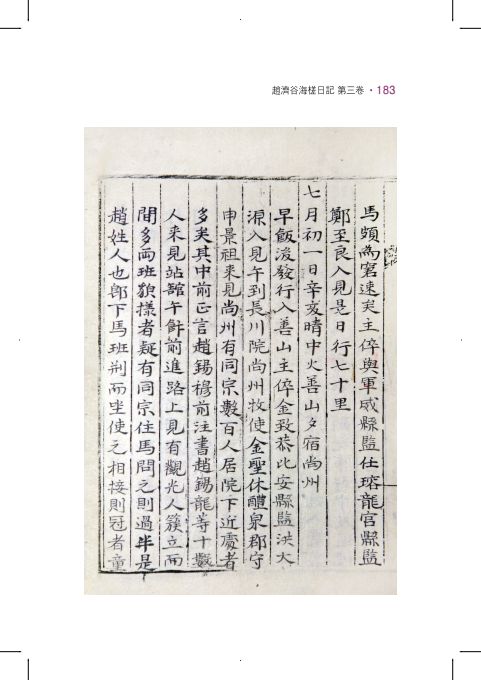 趙濟谷海槎日記 第三卷 • 183
馬頗為窘速矣主倅與軍威縣監任瑢龍宮縣監
鄭至良入見是日行七十里
七月初一日辛亥晴中火善山夕宿尙州
早飯後發行入善山主倅金致恭比安縣監洪大
源入見午到長川院尙州牧使金聖休醴泉郡守
申景祖來見尙州有同宗數百人居院下近處者
多矣其中前正言趙錫穆前注書趙錫龍等十數
人來見站舘午餠前進路上見有觀光人簇立而
間多兩班貌樣者疑有同宗住馬問之則過半是
趙姓人也郞下馬班荆而坐使之相接則冠者童